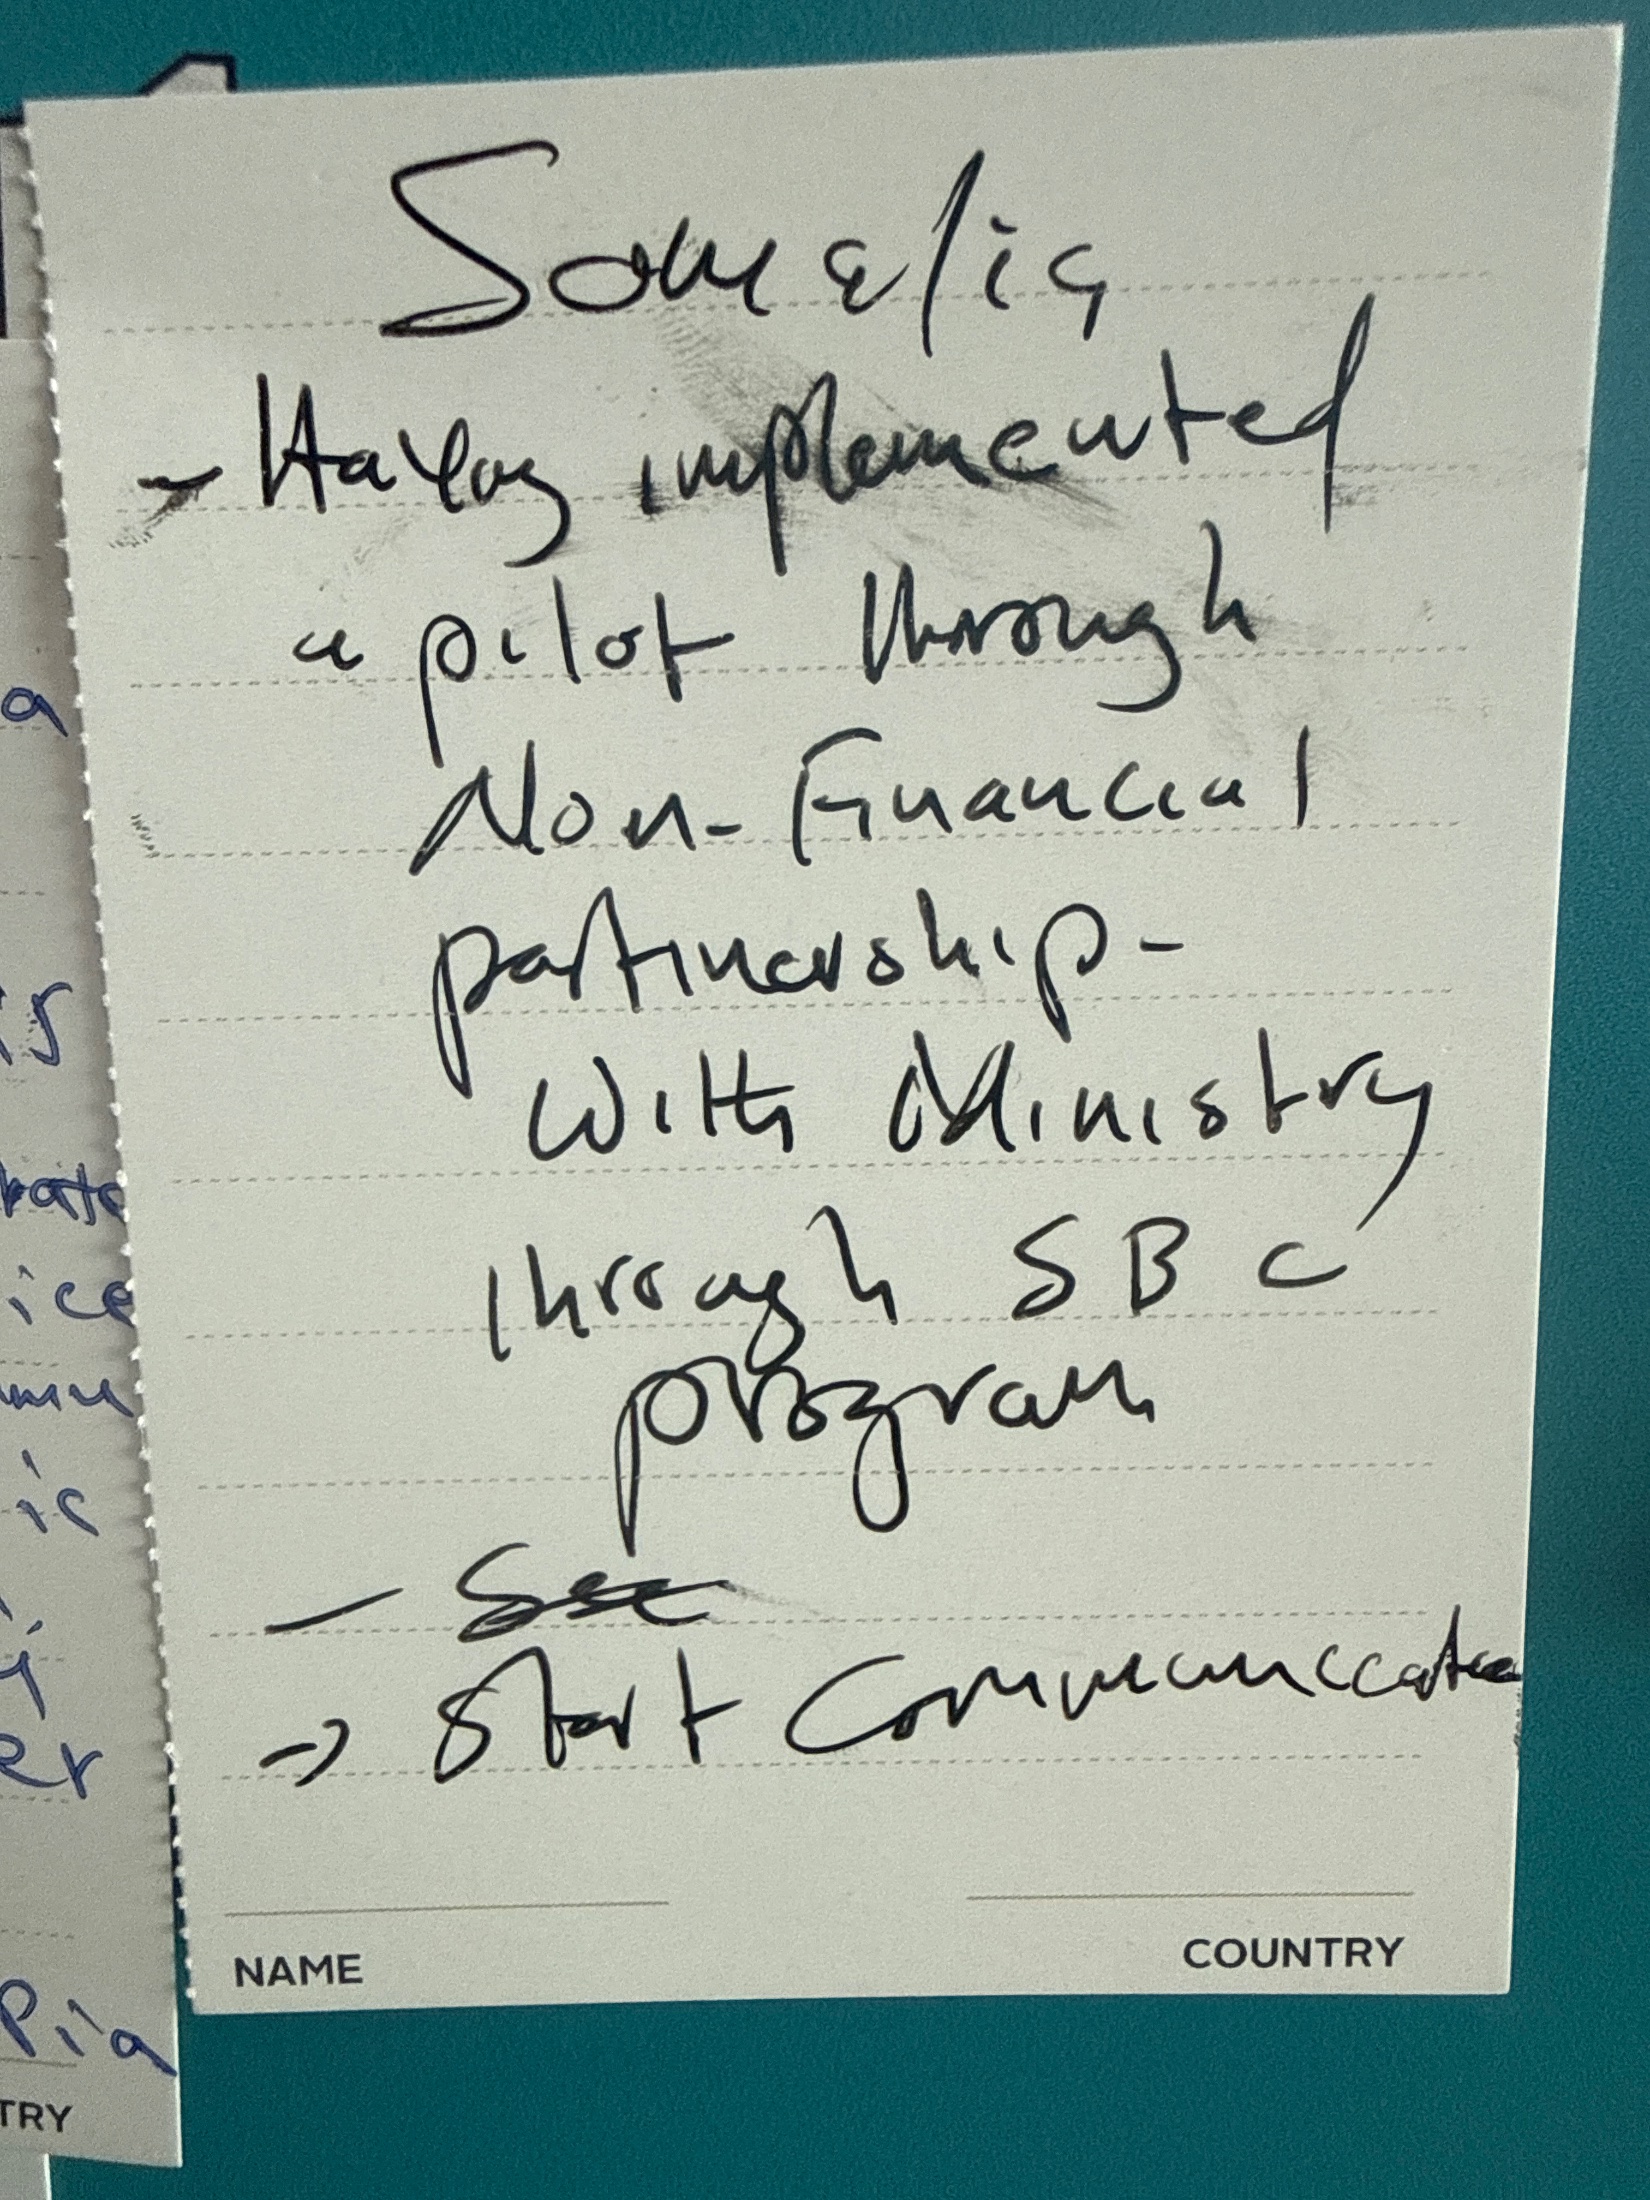 Somalia
- Having implemented
a pilot through
Non-Financial
partinership-
with Ministry
through SBC
program
-
→ Start Communication
NAME
COUNTRY
a
is
ice
mu
is
er
Pia
TRY